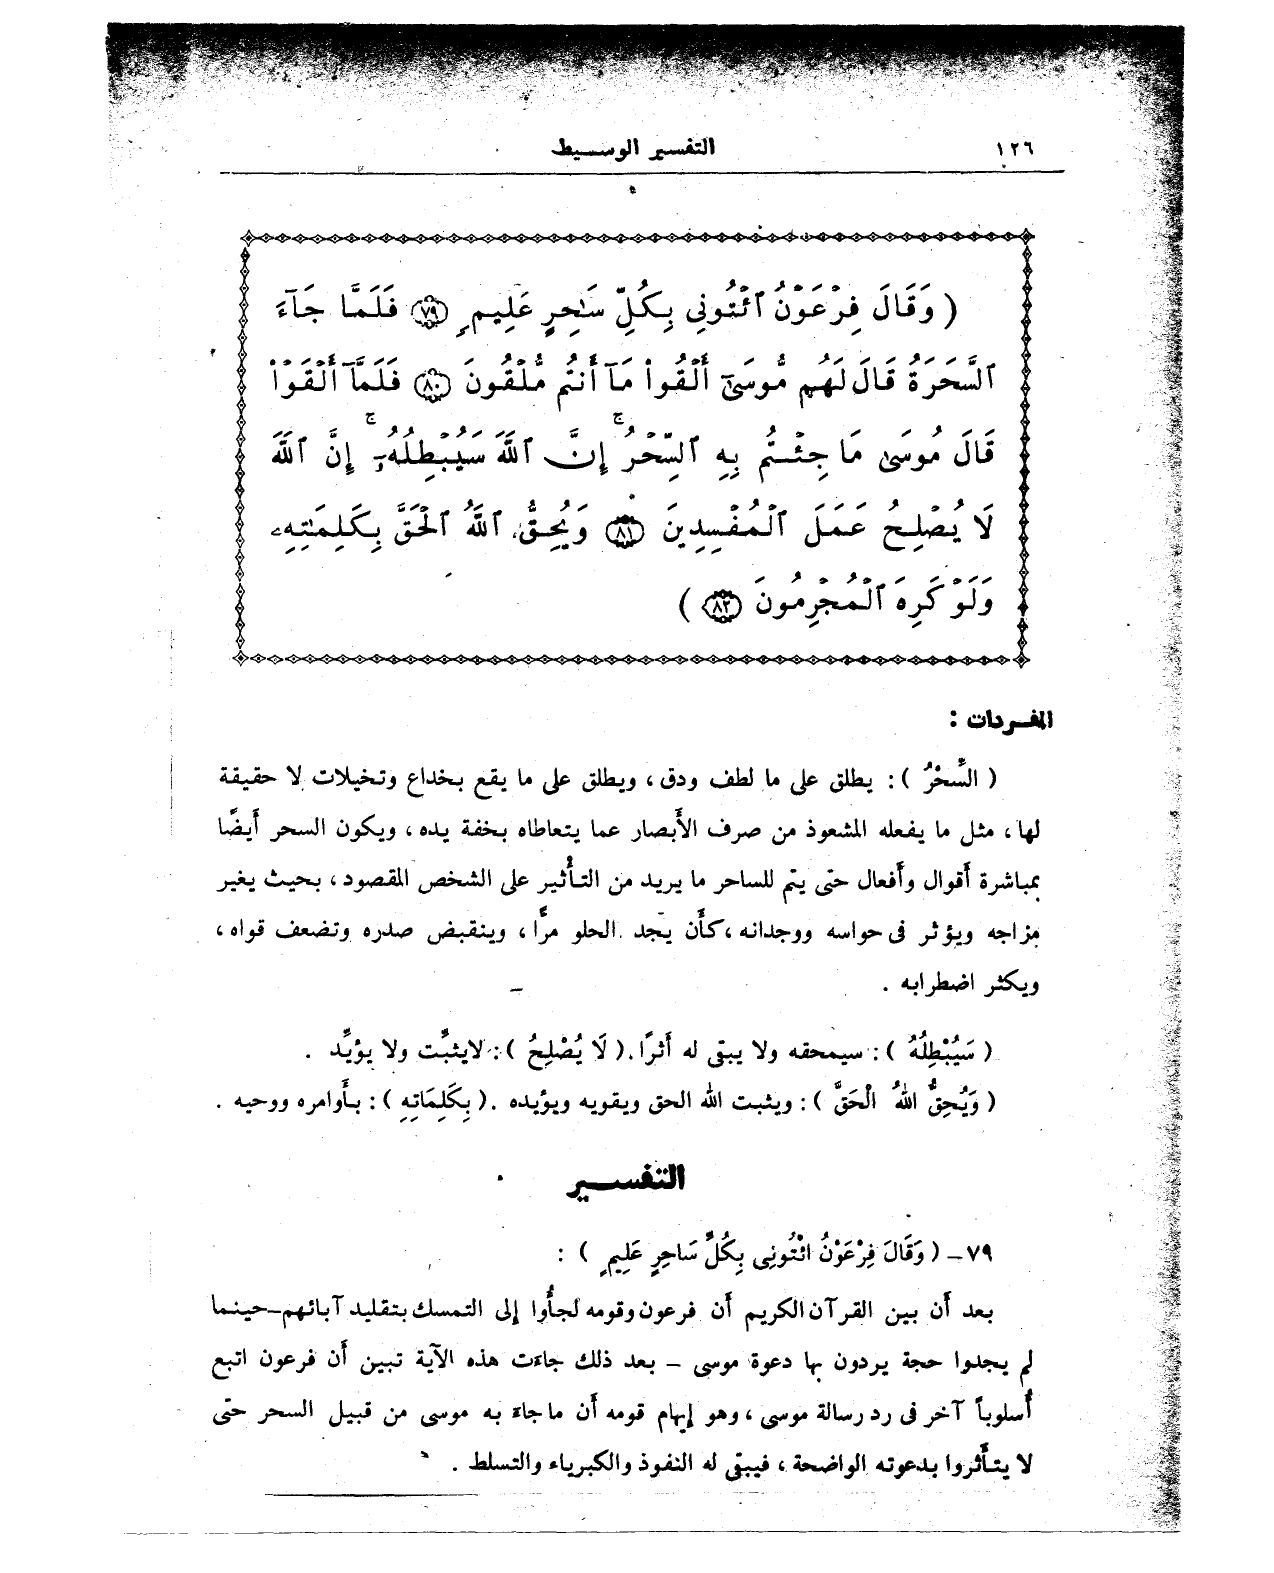 ١٢٦ التفسير الوسيط
( وَقَالَ فِرْعَوْنُ ٱئْتُونِى بِكُلِّ سَـٰحِرٍ عَلِيمٍ ﴿٧٩﴾ فَلَمَّا جَآءَ
ٱلسَّحَرَةُ قَالَ لَهُم مُّوسَىٰٓ أَلْقُوا۟ مَآ أَنتُم مُّلْقُونَ ﴿٨٠﴾ فَلَمَّآ أَلْقَوْا۟
قَالَ مُوسَىٰ مَا جِئْتُم بِهِ ٱلسِّحْرُ ۖ إِنَّ ٱللَّهَ سَيُبْطِلُهُۥٓ ۖ إِنَّ ٱللَّهَ
لَا يُصْلِحُ عَمَلَ ٱلْمُفْسِدِينَ ﴿٨١﴾ وَيُحِقُّ ٱللَّهُ ٱلْحَقَّ بِكَلِمَـٰتِهِۦ
وَلَوْ كَرِهَ ٱلْمُجْرِمُونَ ﴿٨٢﴾ )
المفردات :
( السِّحْرُ ) : يطلق على ما لطف ودق ، ويطلق على ما يقع بخداع وتخيلات لا حقيقة
لها ، مثل ما يفعله المشعوذ من صرف الأبصار عما يتعاطاه بخفة يده ، ويكون السحر أيضًا
بمباشرة أقوال وأفعال حتى يتم للساحر ما يريد من التأثير على الشخص المقصود ، بحيث يغير
مزاجه ويؤثر فى حواسه ووجدانه ، كأن يجد الحلو مرًّا ، وينقبض صدره وتضعف قواه ،
ويكثر اضطرابه .
( سَيُبْطِلُهُ ) : سيمحقه ولا يبقى له أثرًا . ( لَا يُصْلِحُ ) : لا يثبِّت ولا يؤيِّد .
( وَيُحِقُّ اللهُ الْحَقَّ ) : ويثبت الله الحق ويقويه ويؤيده . ( بِكَلِمَاتِهِ ) : بأوامره ووحيه .
التفسير
٧٩ - ( وَقَالَ فِرْعَوْنُ ائْتُونِى بِكُلِّ سَاحِرٍ عَلِيمٍ ) :
بعد أن بين القرآن الكريم أن فرعون وقومه لجأوا إلى التمسك بتقليد آبائهم - حينما
لم يجدوا حجة يردون بها دعوة موسى - بعد ذلك جاءت هذه الآية تبين أن فرعون اتبع
أسلوباً آخر فى رد رسالة موسى ، وهو إيهام قومه أن ما جاء به موسى من قبيل السحر حتى
لا يتأثروا بدعوته الواضحة ، فيبقى له النفوذ والكبرياء والتسلط .